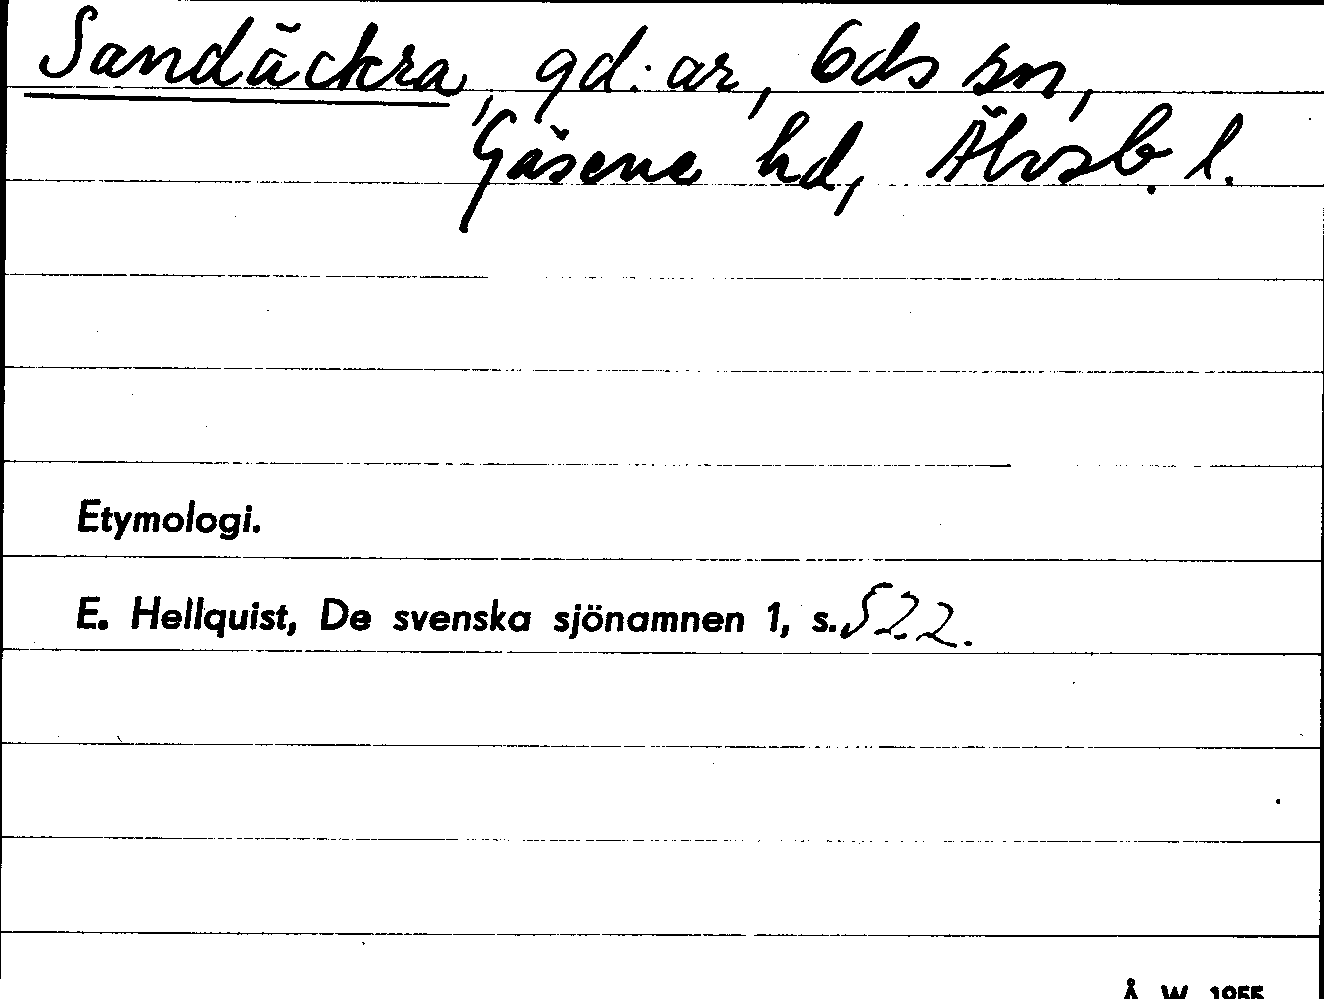 Sandäckra, gd:ar, Öds sn,
Gäsene hd, Älvsb. l.
Etymologi.
E. Hellquist, De svenska sjönamnen 1, s. 522.
Å. W. 1955